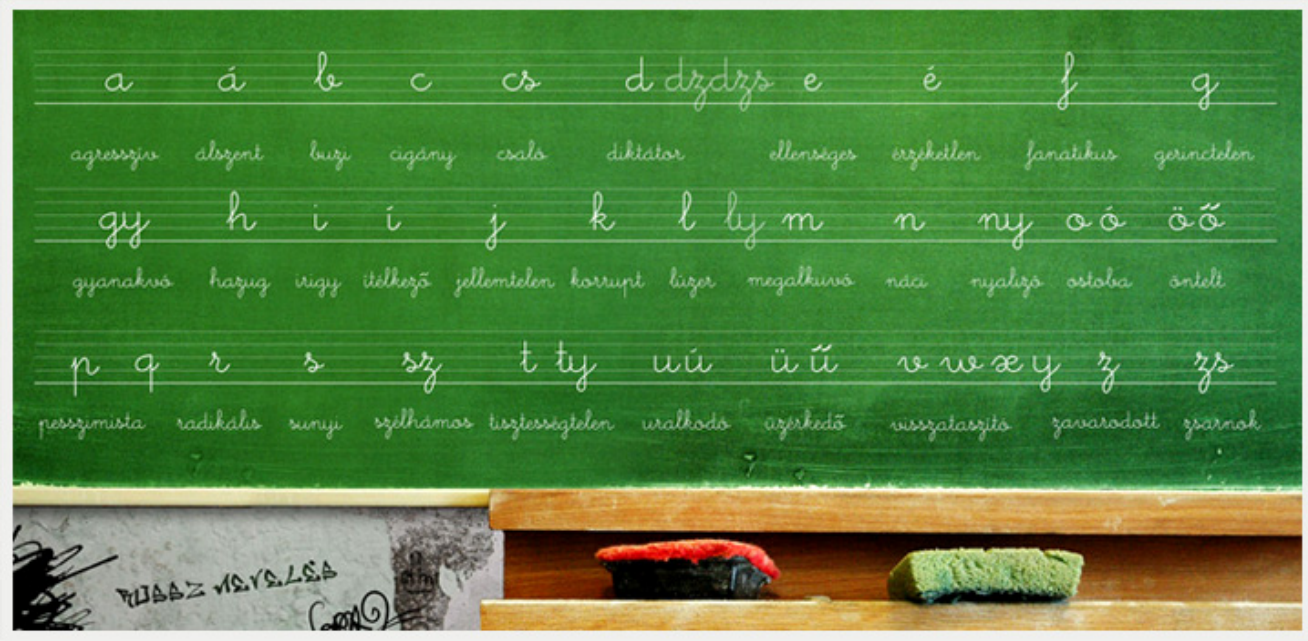 a á b c cs d dzdzs e é f g
agresszív álszent buzi cigány csaló diktátor ellenséges érzéketlen fanatikus gerinctelen
gy h i í j k l ly m n ny o ó ö ő
gyanakvó hazug irigy ítélkező jellemtelen korrupt lúzer megalkuvó náci nyalizó ostoba öntelt
p q r s sz t ty u ú ü ű v w x y z zs
pesszimista radikális sunyi szélhámos tisztességtelen uralkodó üzérkedő visszataszító zavarodott zsarnok
ROSSZ NEVELÉS